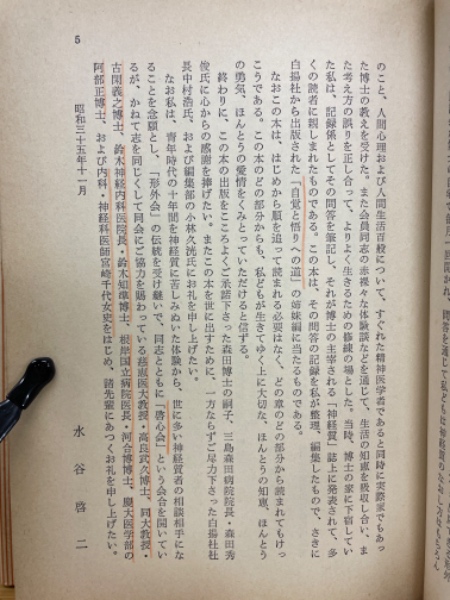 のこと、人間心理および人間生活百般について、すぐれた精神医学者であると同時に実際家でもあっ
た博士の教えを受けた。また会員同志の赤裸々な体験談などを通じて、生活の知恵を吸収し合い、ま
た考え方の誤りを正し合って、よりよく生きるための修練の場とした。当時、博士の家に下宿してい
た私は、記録係としてその問答を筆記し、それが博士の主宰される「神経質」誌上に発表されて、多
くの読者に親しまれたものである。この本は、その問答の記録を私が整理、編集したもので、さきに
白揚社から出版された「自覚と悟りへの道」の姉妹編に当たるものである。
なおこの本は、はじめから順を追って読まれる必要はなく、どの章のどの部分から読まれてもけっ
こうである。この本のどの部分からも、私どもが生きてゆく上に大切な、ほんとうの知恵、ほんとう
の勇気、ほんとうの愛情をくみとっていただけると信ずる。
終わりに、この本の出版をこころよくご承諾下さった森田博士の嗣子、三島森田病院院長・森田秀
俊氏に心からの感謝を捧げたい。またこの本を世に出すために、一方ならずご尽力下さった白揚社社
長中村浩氏、および編集部の小林久洸氏にお礼を申し上げたい。
なお私は、青年時代の十年間を神経質に苦しみぬいた体験から、世に多い神経質者の相談相手にな
ることを念願とし、「形外会」の伝統を受け継いで、同志とともに「啓心会」という会合を開いてい
るが、かねて志を同じくして同会にご協力を賜わっている慈恵医大教授・高良武久博士、同大教授・
古閑義之博士、鈴木神経内科医院長・鈴木知準博士、根岸国立病院医長・河合博博士、慶大医学部の
阿部正博士、および内科・神経科医師宮崎千代女史をはじめ、諸先輩にあつくお礼を申し上げたい。
昭和三十五年十一月
水谷啓二
5